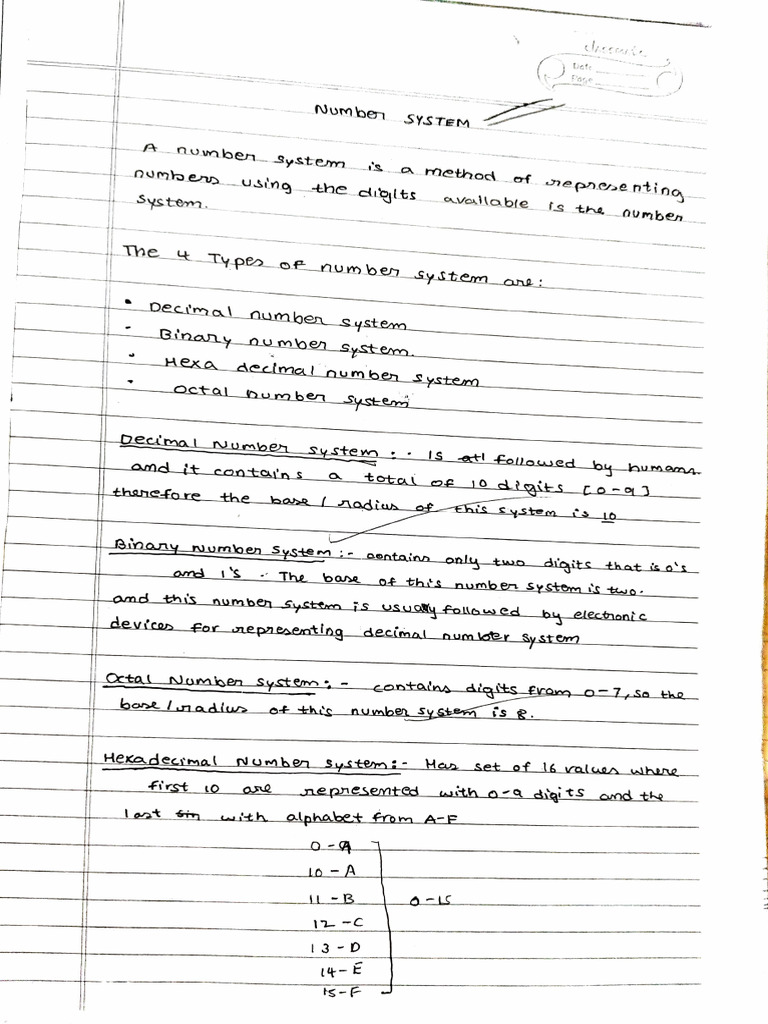 Date
Page
Number SYSTEM
A number system is a method of representing
numbers using the digits available is the number
system.
The 4 Types of number system are:
• Decimal number system
• Binary number system.
• Hexa decimal number system
• Octal number system
Decimal Number system :- Is followed by humans
and it contains a total of 10 digits [0-9]
therefore the base/radius of this system is 10
Binary Number System :- contains only two digits that is 0's
and 1's. The base of this number system is two.
and this number system is usually followed by electronic
devices for representing decimal number system
Octal Number system :- contains digits from 0-7, so the
base/radius of this number system is 8.
Hexadecimal Number system :- Has set of 16 values where
first 10 are represented with 0-9 digits and the
last six with alphabet from A-F
0-9
10-A
11-B 0-15
12-C
13-D
14-E
15-F